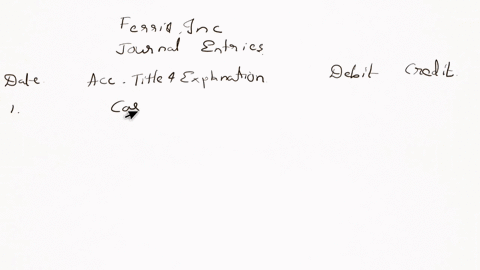 Ferris, Inc
Journal Entries
Date Acc. Title & Explanation Debit Credit.
1. Cas